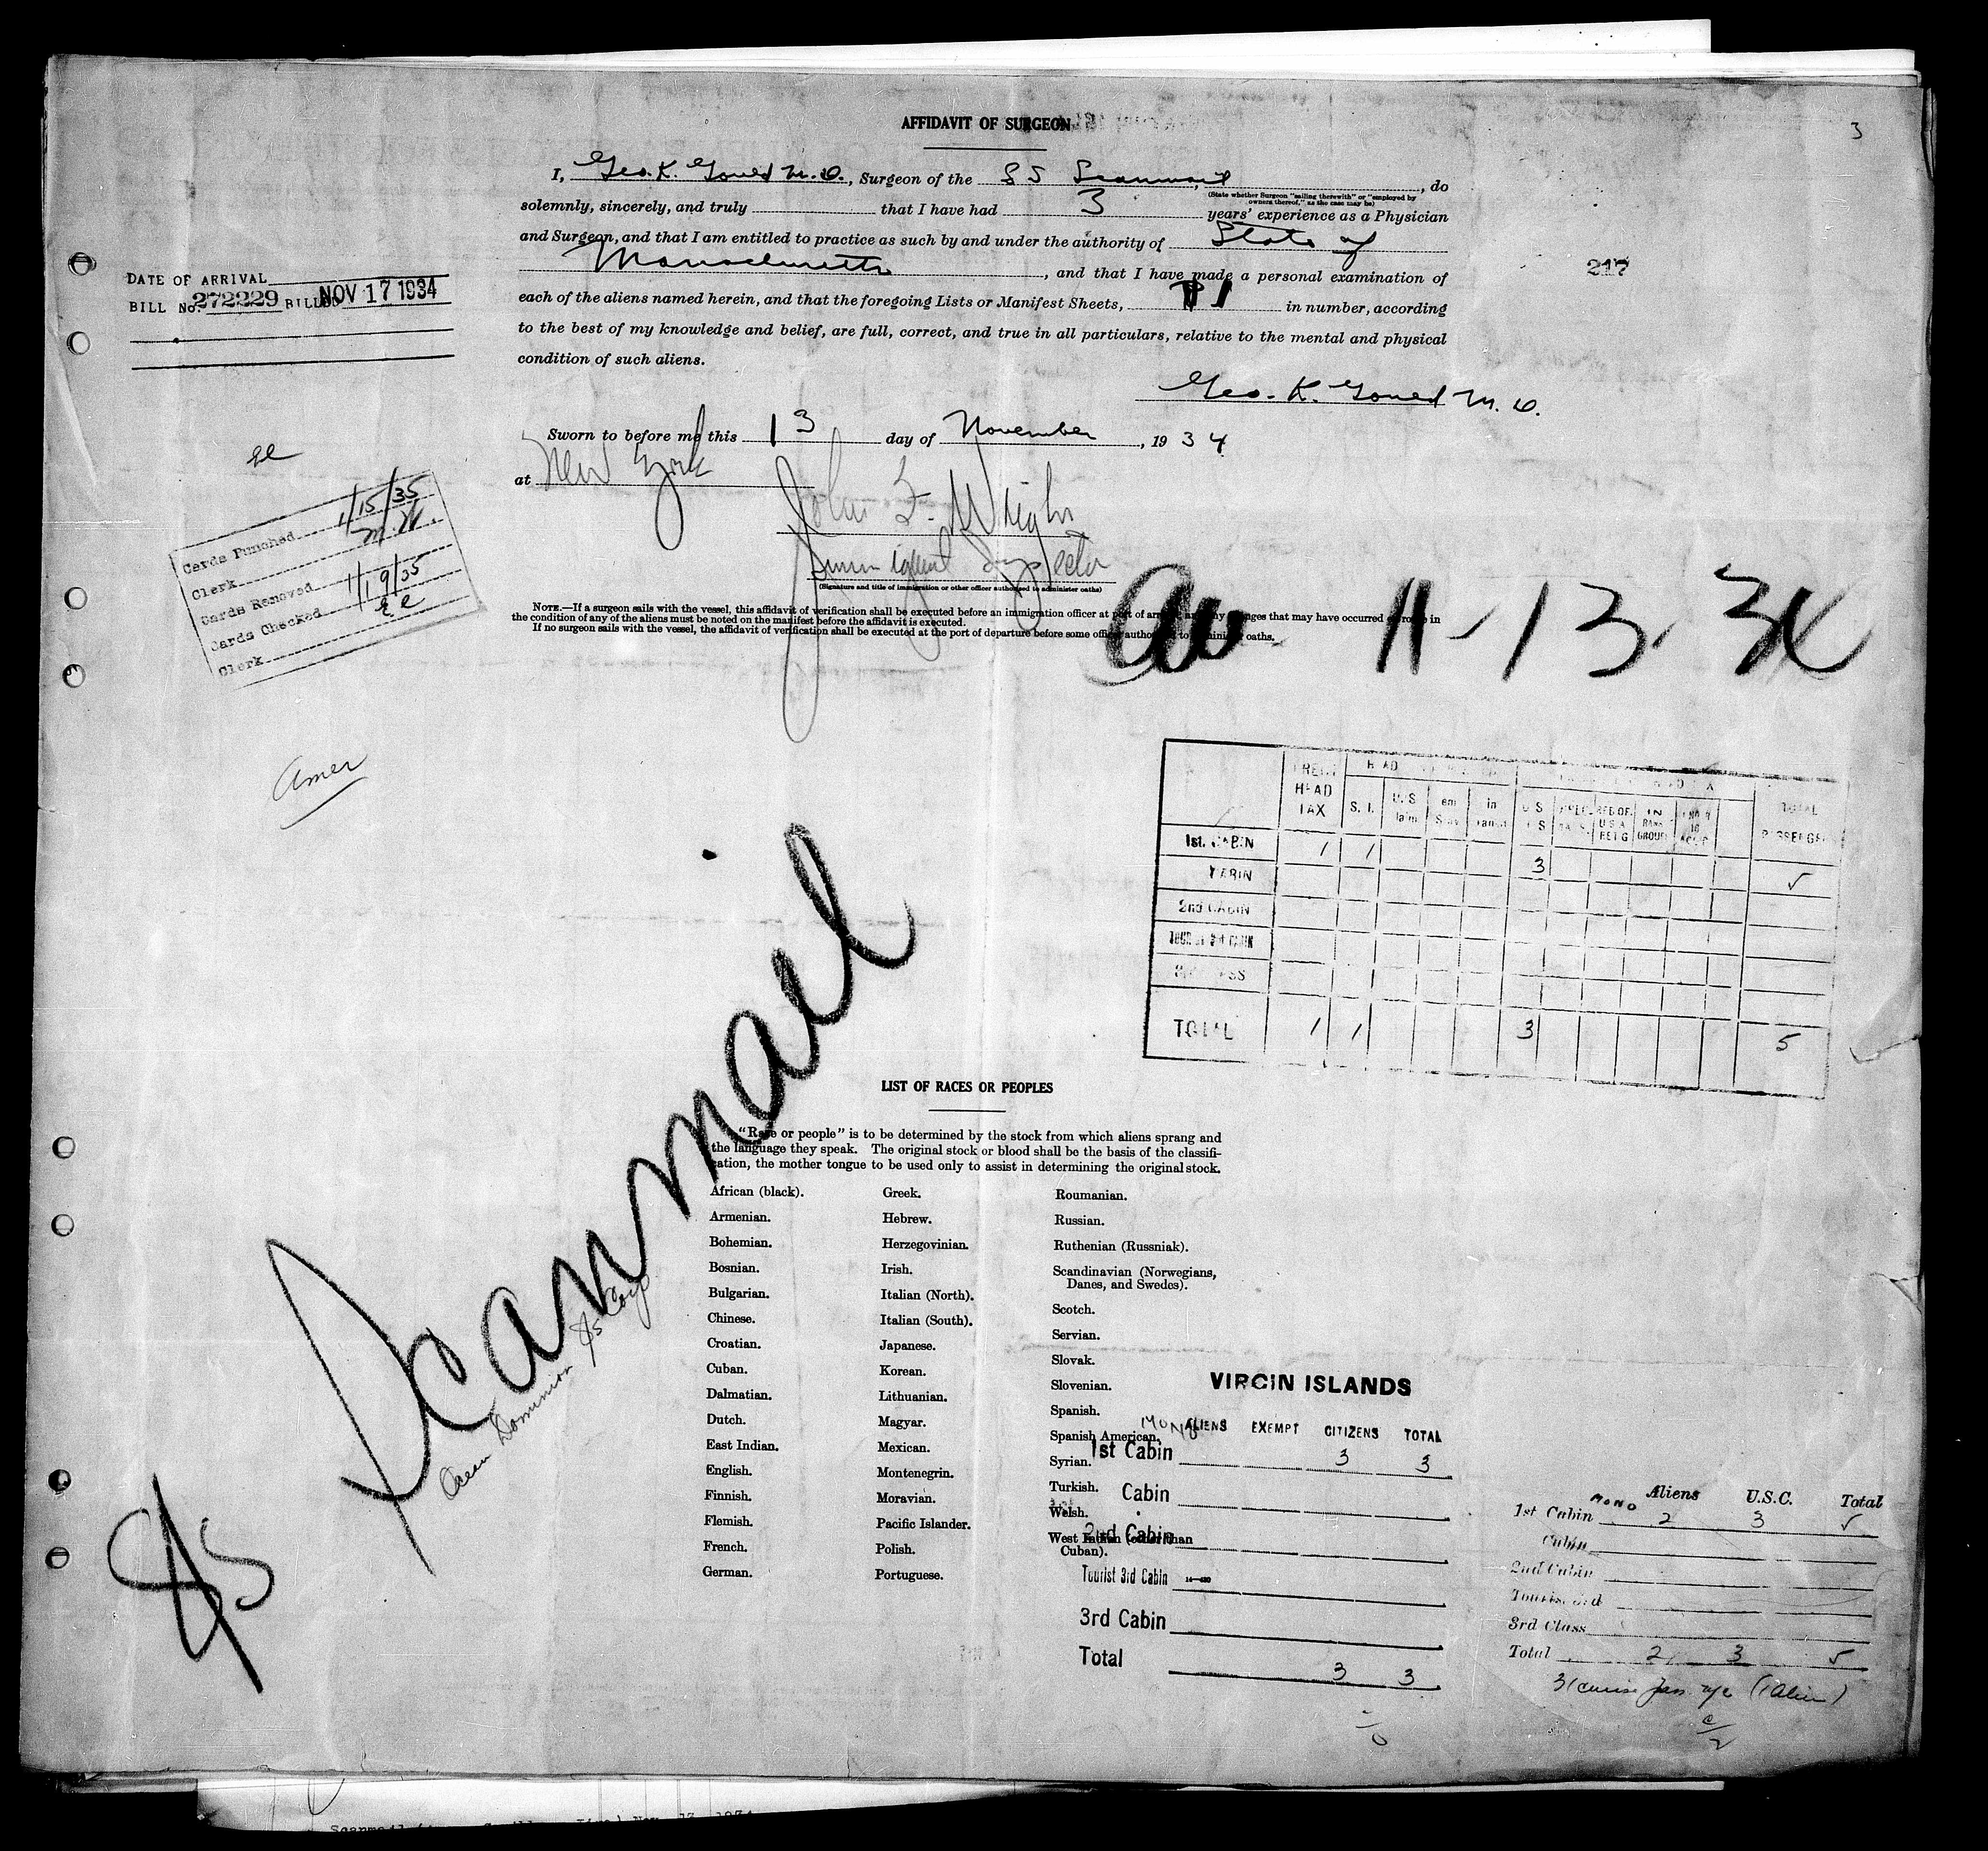 AFFIDAVIT OF SURGEON
3
I, Geo. K. Gould M.D., Surgeon of the SS Scanmail, do
(State whether Surgeon "sailing therewith" or "employed by owners thereof," as the case may be)
solemnly, sincerely, and truly that I have had 3 years' experience as a Physician
and Surgeon, and that I am entitled to practice as such by and under the authority of State of
Massachusetts, and that I have made a personal examination of
each of the aliens named herein, and that the foregoing Lists or Manifest Sheets, 1 in number, according
to the best of my knowledge and belief, are full, correct, and true in all particulars, relative to the mental and physical
condition of such aliens.
217
DATE OF ARRIVAL
BILL No. 272229 BILLED NOV 17 1934
Geo. K. Gould M.D.
Sworn to before me this 13 day of November, 1934
at New York
John F. Wright
Immigrant Inspector
(Signature and title of immigration or other officer authorized to administer oaths)
NOTE.—If a surgeon sails with the vessel, this affidavit of verification shall be executed before an immigration officer at port of arrival and any changes that may have occurred en route in
the condition of any of the aliens must be noted on the manifest before the affidavit is executed.
If no surgeon sails with the vessel, the affidavit of verification shall be executed at the port of departure before some officer authorized to administer oaths.
Cards Punched 1/15/35
Clerk M.W.
Cards Removed
Cards Checked 1/19/35
Clerk
11-13-34
Amer
HEAD TAX S. I. U.S in transit TOTAL PASSENGERS
1st. CABIN 1 1 3 5
CABIN
2nd CABIN
TOTAL 1 1 3 5
SS Scanmail
Ocean Dominion SS Corp
LIST OF RACES OR PEOPLES
"Race or people" is to be determined by the stock from which aliens sprang and
the language they speak. The original stock or blood shall be the basis of the classifi-
cation, the mother tongue to be used only to assist in determining the original stock.
African (black).
Armenian.
Bohemian.
Bosnian.
Bulgarian.
Chinese.
Croatian.
Cuban.
Dalmatian.
Dutch.
East Indian.
English.
Finnish.
Flemish.
French.
German.
Greek.
Hebrew.
Herzegovinian.
Irish.
Italian (North).
Italian (South).
Japanese.
Korean.
Lithuanian.
Magyar.
Mexican.
Montenegrin.
Moravian.
Pacific Islander.
Polish.
Portuguese.
Roumanian.
Russian.
Ruthenian (Russniak).
Scandinavian (Norwegians,
Danes, and Swedes).
Scotch.
Servian.
Slovak.
Slovenian.
Spanish.
Spanish American.
Syrian.
Turkish.
Welsh.
West Indian (other than
Cuban).
VIRGIN ISLANDS
MONO ALIENS EXEMPT CITIZENS TOTAL
1st Cabin 3 3
Cabin
2nd Cabin
Tourist 3rd Cabin
3rd Cabin
Total 3 3
MONO Aliens U.S.C. Total
1st Cabin 2 3 5
Cabin
2nd Cabin
Tourist 3rd
3rd Class
Total 2 3 5